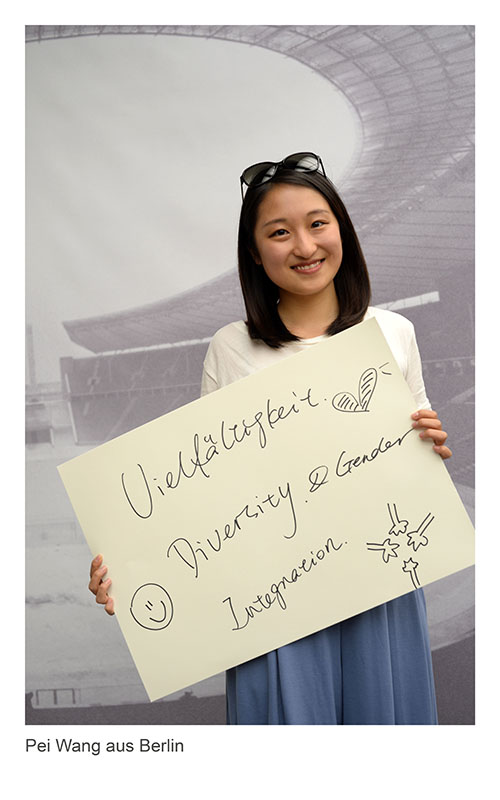 Vielfältigkeit.
Diversity & Gender
Integration.
Pei Wang aus Berlin